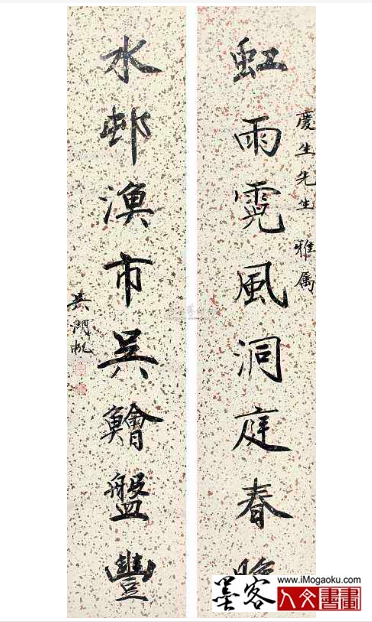 慶生先生 雅属
虹雨霓風洞庭春
水邨漁市吳鱠盤豐
吳湖帆
墨客
www.iMogaoku.com
人文書畫